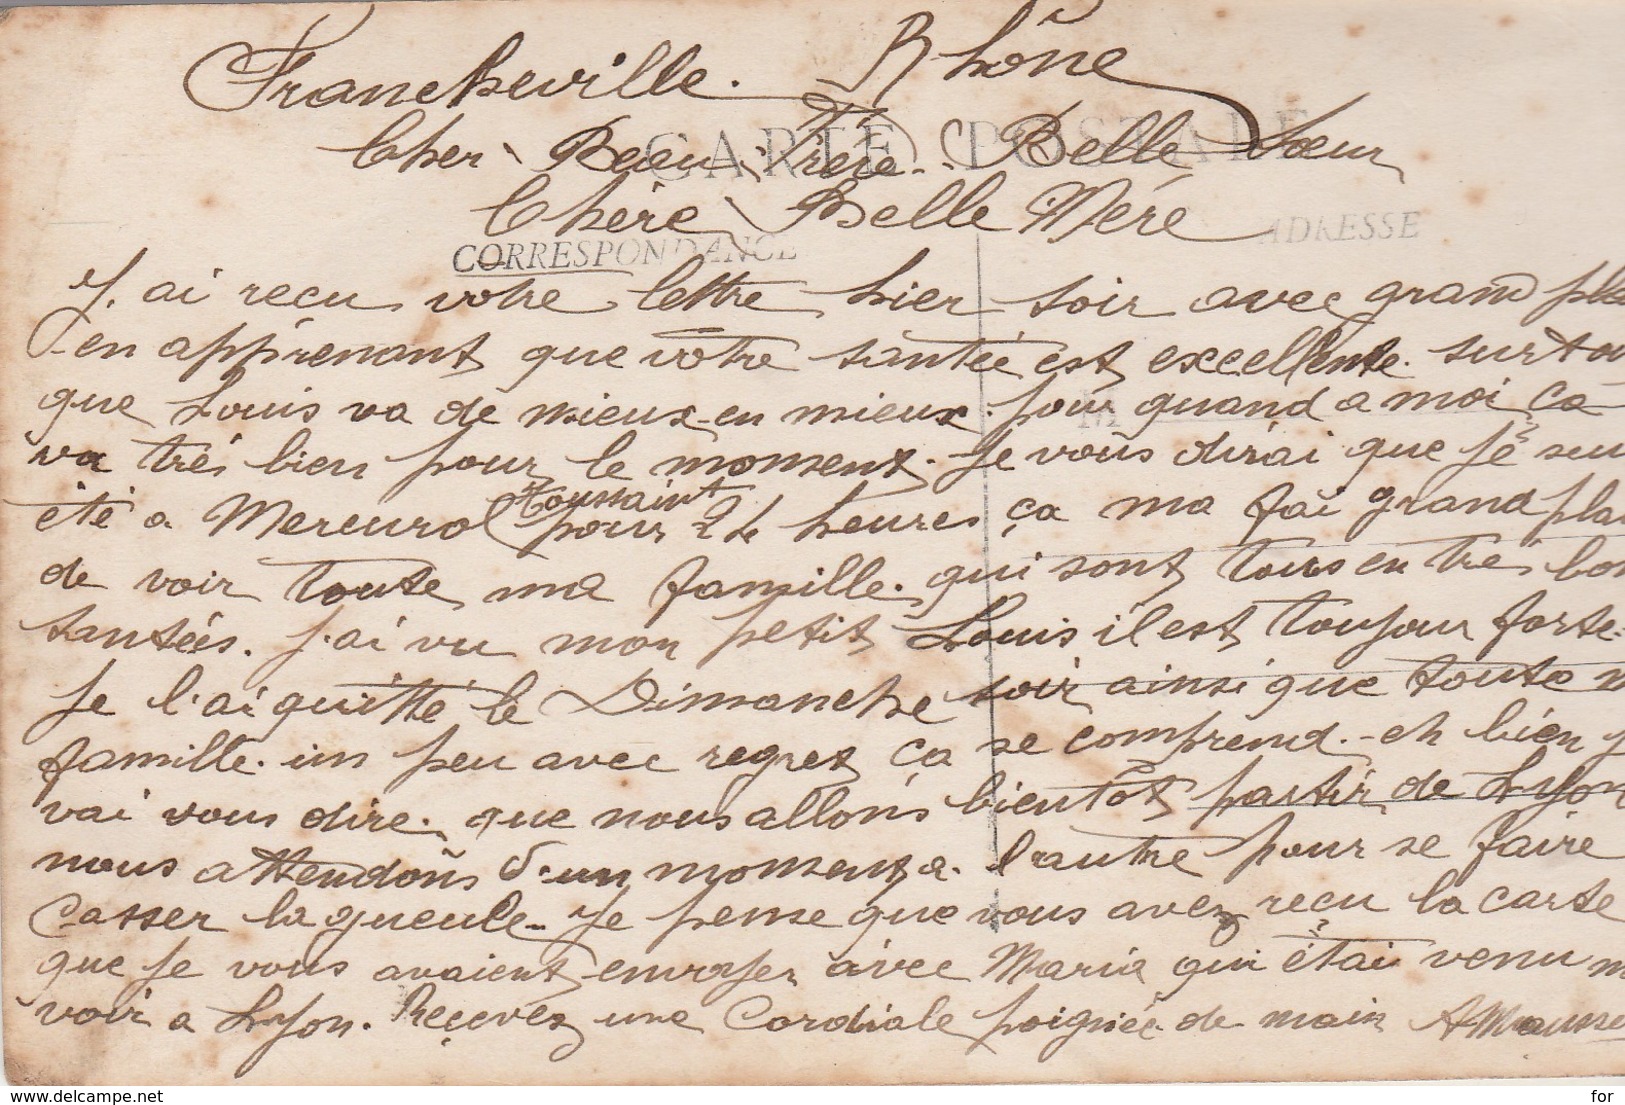 Francheville. Rhône
CARTE POSTALE
Cher Beau Frère Belle Soeur
Chère Belle Mére
CORRESPONDANCE
ADRESSE
J. ai recu votre lettre hier soir avec grand
en apprenant que votre santée est excellente. surtou
que Louis va de mieux en mieux. pour quand a moi ça
M
va trés bien pour le moment. Je vous dirai que Je sui
été a Mercurol Toussaint pour 24 heures ça ma fai grand plai
de voir toute ma famille. qui sont tous en trés bon
santées. J.ai vu mon petit Louis il est toujour forte.
Je l'ai quitté le Dimanche soir ainsi que toute m
famille. un peu avec regret ça se comprend. eh bien J
vai vous dire. que nous allons bientôt partir de Lyon
nous attendons d.un moment a. l'autre pour se faire
Casser la gueule. Je pense que vous avez reçu la carte
que Je vous avaient envoyer avec Maria qui étai venu m
voir a Lyon. Reçevez une Cordiale poignée de main
delcampe.net
for